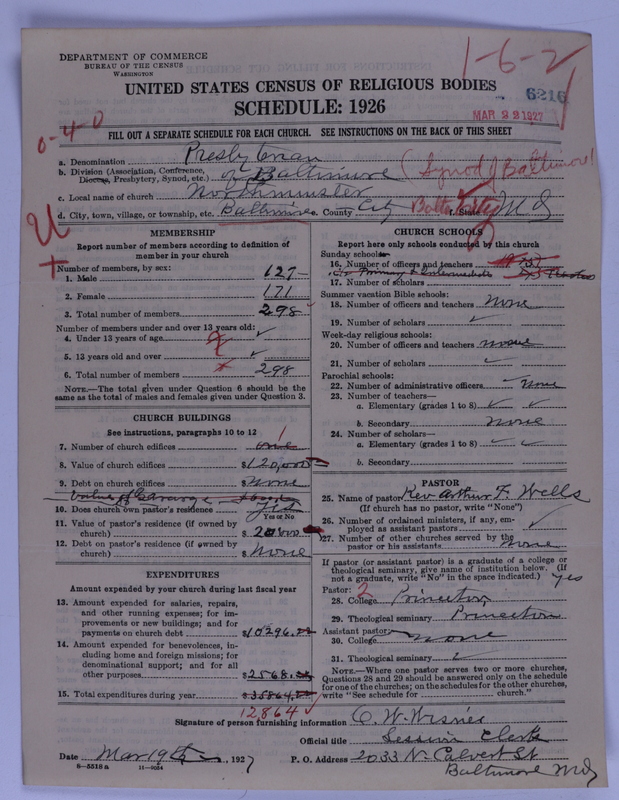 DEPARTMENT OF COMMERCE
BUREAU OF THE CENSUS
WASHINGTON
1-6-2
UNITED STATES CENSUS OF RELIGIOUS BODIES
6216
SCHEDULE: 1926
MAR 22 1927
0-4-0
FILL OUT A SEPARATE SCHEDULE FOR EACH CHURCH. SEE INSTRUCTIONS ON THE BACK OF THIS SHEET
a. Denomination Presbyterian
b. Division (Association, Conference, Diocese, Presbytery, Synod, etc.) of Baltimore (Synod of Baltimore)
c. Local name of church Northminster
d. City, town, village, or township, etc. Baltimore e. County City Balto City f. State Md
MEMBERSHIP
Report number of members according to definition of
member in your church
Number of members, by sex:
1. Male 127
2. Female 171
3. Total number of members 298
Number of members under and over 13 years old:
4. Under 13 years of age
5. 13 years old and over
6. Total number of members 298
NOTE.—The total given under Question 6 should be the
same as the total of males and females given under Question 3.
CHURCH BUILDINGS
See instructions, paragraphs 10 to 12
7. Number of church edifices one 1
8. Value of church edifices $120,000
9. Debt on church edifices $None
Value of Garage
10. Does church own pastor's residence Yes
Yes or No
11. Value of pastor's residence (if owned by
church) $
12. Debt on pastor's residence (if owned by
church) $None
EXPENDITURES
Amount expended by your church during last fiscal year
13. Amount expended for salaries, repairs,
and other running expenses; for im-
provements or new buildings; and for
payments on church debt $10296.
14. Amount expended for benevolences, in-
cluding home and foreign missions; for
denominational support; and for all
other purposes $2568.
15. Total expenditures during year
12,864
CHURCH SCHOOLS
Report here only schools conducted by this church
Sunday schools:
16. Number of officers and teachers
17. Number of scholars
Summer vacation Bible schools:
18. Number of officers and teachers None
19. Number of scholars
Week-day religious schools:
20. Number of officers and teachers none
21. Number of scholars
Parochial schools:
22. Number of administrative officers none
23. Number of teachers—
a. Elementary (grades 1 to 8)
b. Secondary none
24. Number of scholars—
a. Elementary (grades 1 to 8)
b. Secondary
PASTOR
25. Name of pastor Rev Arthur F. Wells
(If church has no pastor, write "None")
26. Number of ordained ministers, if any, em-
ployed as assistant pastors
27. Number of other churches served by the
pastor or his assistants none
If pastor (or assistant pastor) is a graduate of a college or
theological seminary, give name of institution below. (If
not a graduate, write "No" in the space indicated.) yes
Pastor: 2
28. College Princeton
29. Theological seminary Princeton
Assistant pastor:
30. College none
31. Theological seminary
NOTE.—Where one pastor serves two or more churches,
Questions 28 and 29 should be answered only on the schedule
for one of the churches; on the schedules for the other churches,
write "See schedule for church."
Signature of person furnishing information C. W.
Official title Session Clerk
Date Mar 19th, 1927 P. O. Address 2033 N. Calvert St
8—5518 a 11—9054 Baltimore Md